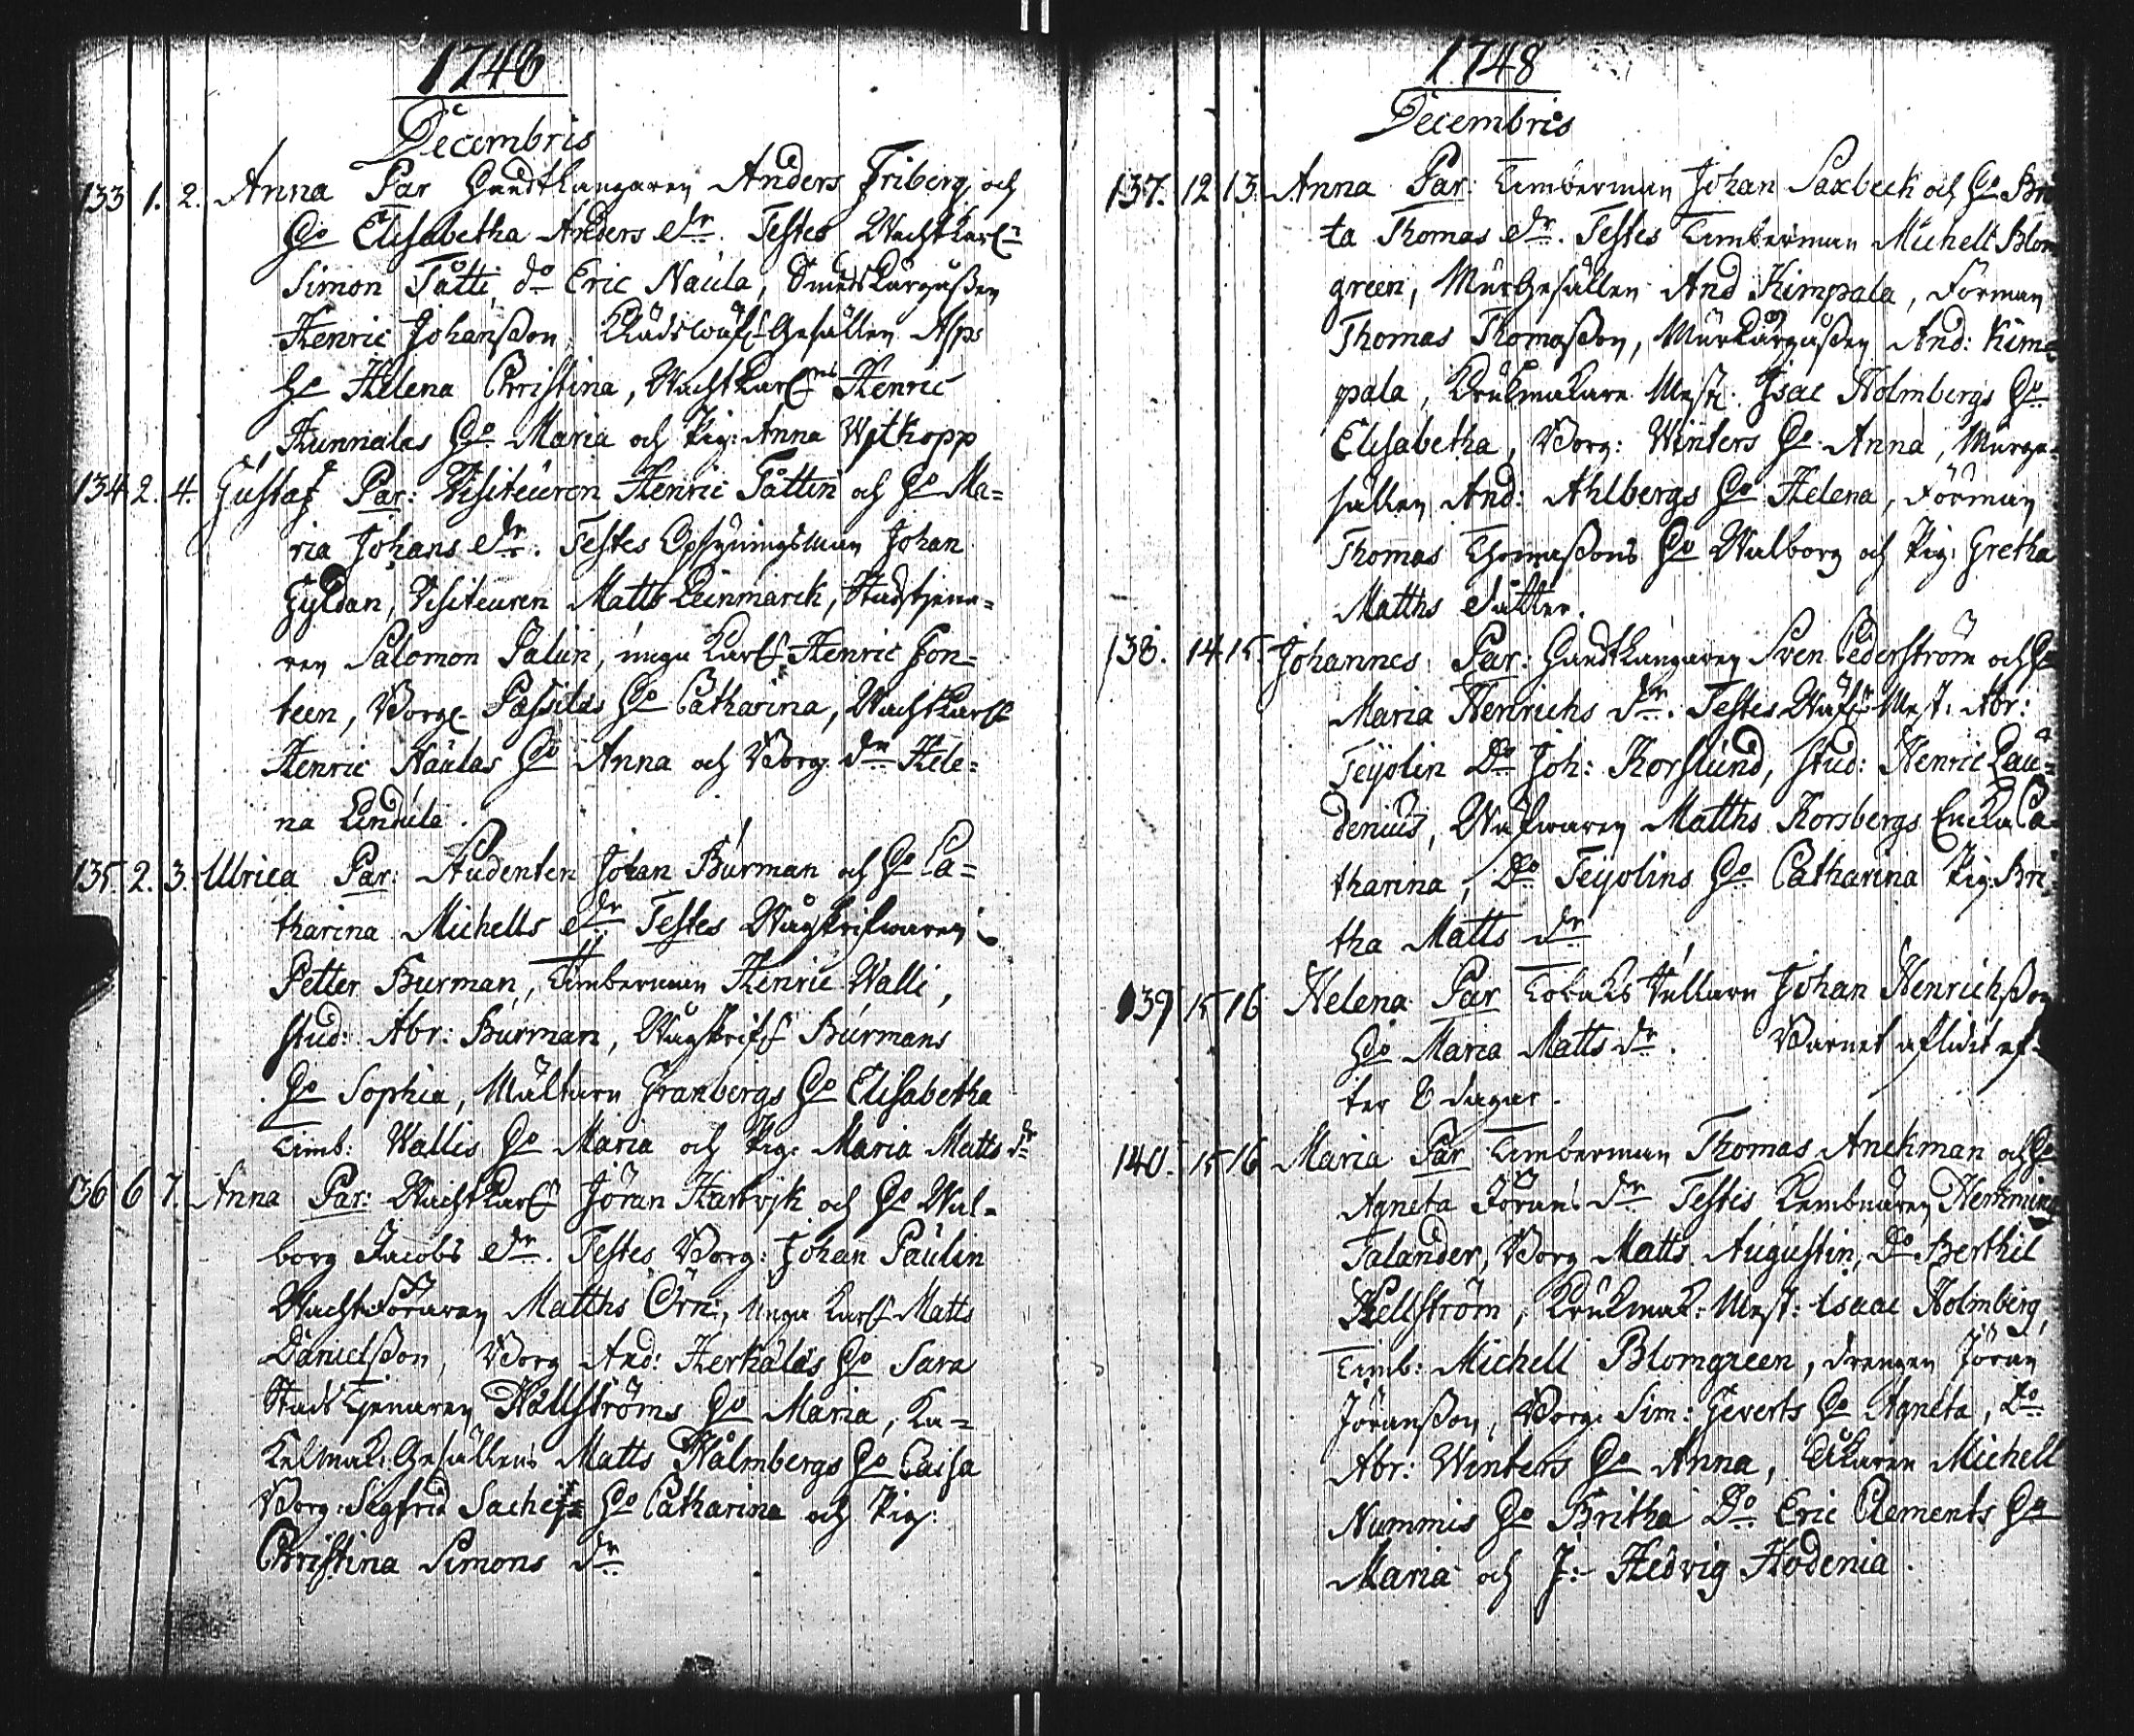 1748
Decembris
133 1. 2. Anna Par Handtlangaren Anders Friberg och
Ho Elisabetha Anders dr. Testes Wachtkarl
Simon Tåtti, do Eric Naula, Smedskårgåßen
Henric Johanßon, Gesällen Asps
Ho Helena Christina, Wachtkarlns Henric
Kunnalas Ho Maria och Pig: Anna Witkopp
134 2. 4. Gustaf Par: Visiteuren Henric Tåttin och Ho Ma=
ria Johans dr. Testes Opsyningsman Johan
Gyldan, Visiteuren Matts Leinmarck, Stadstjena=
ren Salomon Palin, unga Karl: Henric Fon=
teen, Borg. Passilas Ho Catharina, Wachtkarls
Henric Naulas Ho Anna och Borg. dr Hele=
na Lindula.
135. 2. 3. Ulrica Par: Studenten Johan Burman och Ho Ca=
tharina Michells dr Testes Wågskrifwaren
Petter Burman, Timberman Henric Walli,
Stud: Abr: Burman, Wågskrif Burmans
Ho Sophia, Mältarn Granbergs Ho Elisabetha
Timb: Wallis Ho Maria och Pig: Maria Matts dr
136 6 7. Anna Par: Wachtkarl Jöran Hartvik och Ho Wal=
borg Jacobs dr. Testes Borg: Johan Paulin
Wachtföraren Matths Örn, Unga Karl Matts
Danielßon, Borg And: Herkålas Ho Sara
Stads Tjenaren Hallströms Ho Maria, Ka=
kelmak: Gesällens Matts Malmbergs Ho Caisa
Borg: Segfrid Ho Catharina och Pig:
Christina Simons dr
1748
Decembris
137. 12 13. Anna Par: Timberman Johan Saxbeck och Ho Bri
ta Thomas dr. Testes Timberman Michell Blom
green, Mur Gesällen And Kimpala, Förman
Thomas Thomaßon, Murkårgåßen And: Kim=
pala, Krukmakare Mest: Isac Holmbergs Ho
Elisabetha, Borg: Winters Ho Anna, Murge=
sällen And: Ahlbergs Ho Helena, Förman
Thomas Thomaßons Ho Walborg och Pig: Gretha
Matths dätter.
138. 14 15. Johannes Par: Handtlangaren Sven Cederström och Ho
Maria Henrichs dr. Testes Mest. Abr:
Teijolin Do Joh: Korslund, Stud: Henric Lau=
denius, Wäfwaren Matths Korsbergs Encka Ca=
tharina, Do Teijolins Ho Catharina Pig: Bri=
tha Matts dr
139 15 16 Helena Par Tobaks Johan Henrichßon
Ho Maria Matts dr. Barnet aflidit ef=
ter 8 dagar.
140. 15 16 Maria Par Timberman Thomas Anckman och Ho
Agneta Jörans dr Testes Hemming
Talander, Borg Matts Augustin, Do Berthil
Hellström, Krukmak: Mest: Isaac Holmberg,
Timb: Michell Blomgreen, Drengen Jöran
Jöranßon, Borg. Sim: Geverts Ho Agneta, Do
Abr: Winters Ho Anna, Åkaren Michell
Nummis Ho Britha Do Eric Clements Ho
Maria och J: Hedvig Hodenia.